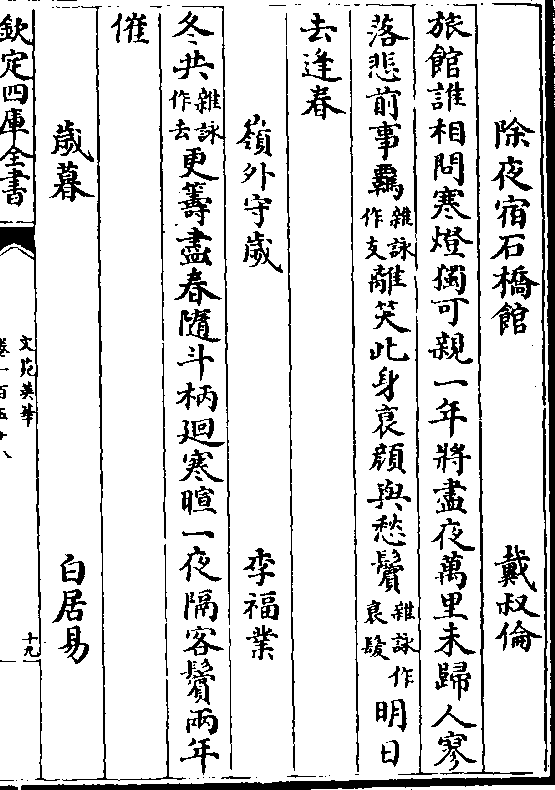 除夜宿石橋館　戴叔倫
旅館誰相問寒燈獨可親一年將盡夜萬里未歸人寥
落悲前事羈雜詠作支離笑此身衰顔與愁鬢雜詠作衰髮明日
去逢春
嶺外守歲　李福業
冬共雜詠作去更籌盡春隨斗柄廻寒暄一夜隔客鬢兩年
催
歲暮　白居易
欽定四庫全書
文苑英華
卷一百五十八
十九